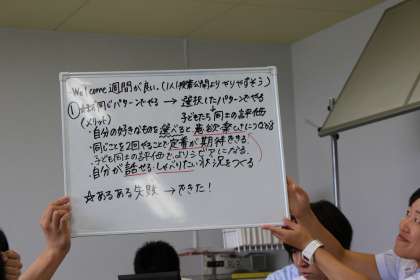 Welcome週間が良い。(1人1授業公開より
①毎時同じパターンでやる → 選択したパターンでやる
(メリット) 子どもたち同士の評価
・自分の好きなものを選べると意欲 楽しさにつながる
・同じことを2回やることで定着が期待できる
・子ども同士の評価で、よりシビアになる。
・自分が話せる、しゃべりたい状況をつくる
☆あるある失敗 → できた!